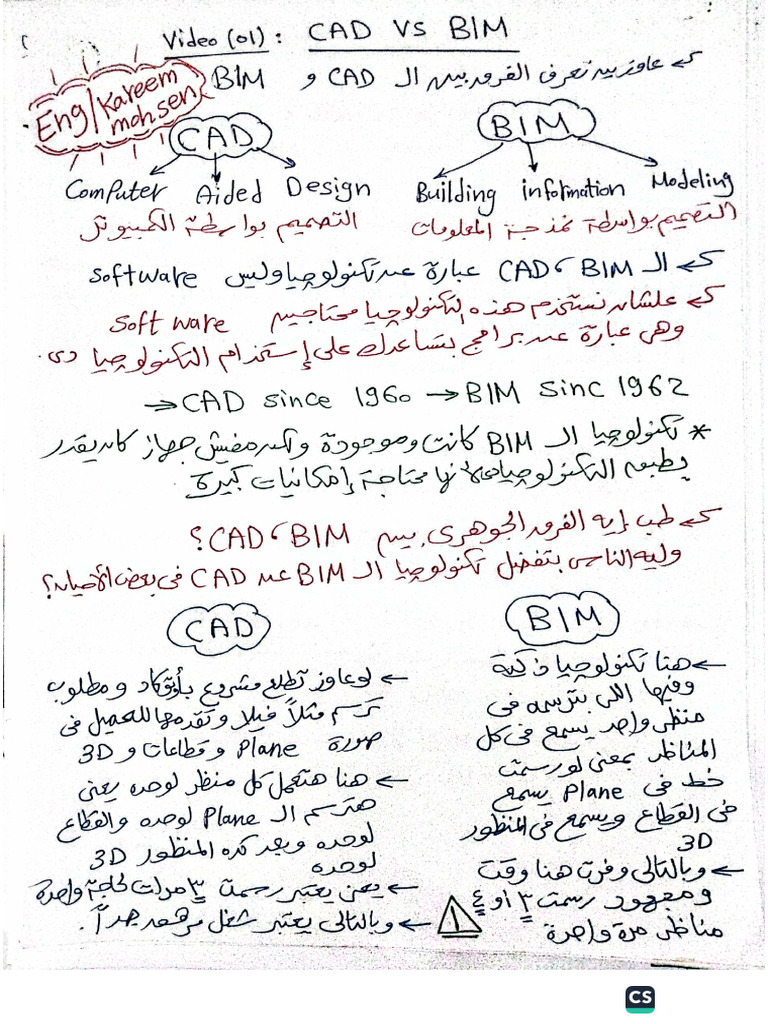 Video (01) : CAD VS BIM
عاوزين نعرف الفرق بين الـ CAD و BIM
Eng/Kareem
mohsen
CAD
Computer Aided Design
التصميم بواسطة الكمبيوتر
BIM
Building information Modeling
التصميم بواسطة نمذجة المعلومات
الـ BIM ، CAD عبارة عن تكنولوجيا وليس software
علشان نستخدم هذه التكنولوجيا محتاجين Soft ware
وهى عبارة عن برامج بتساعدك على إستخدام التكنولوجيا دى.
⇒ CAD since 1960 → BIM Sinc 1962
* تكنولوجيا الـ BIM كانت موجودة ولكن مفيش جهاز كان يقدر
يطبق التكنولوجيا لأنها محتاجة إمكانيات كبيرة.
طب إيه الفرق الجوهرى بين BIM ، CAD؟
وليه الناس بتفضل تكنولوجيا الـ BIM عن CAD فى بعض الأحيان؟
BIM
← هنا تكنولوجيا ذكية
وفيها اللى بترسمه فى
منظر واحد يسمع فى كل
المناظر بمعنى لو رسمت
خط فى Plane يسمع
فى القطاع ويسمع فى المنظور
3D
← وبالتالى وفرت هنا وقت
ومجهود رسمت ٣ او ٤
مناظر مرة واحدة
CAD
← لو عاوز تطلع مشروع بأوتوكاد ومطلوب
ترسم مثلاً فيلا وتقدمها للعميل فى
صورة Plane وقطاعات و 3D
← هنا هتعمل كل منظر لوحده يعنى
هترسم الـ Plane لوحده والقطاع
لوحده وبعد كده المنظور 3D
لوحده
← يعنى يعتبر رسمت ٣ مرات لحاجة واحدة
← وبالتالى يعتبر شغل مرهق جداً.
١
CS